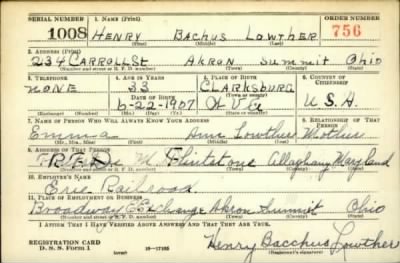 SERIAL NUMBER 1. NAME (Print) ORDER NUMBER
1008 HENRY BACHUS LOWTHER 756
(First) (Middle) (Last)
2. ADDRESS (Print)
234 CARROLL St AKRON Summit Ohio
(Number and street or R. F. D. number) (Town) (County) (State)
3. TELEPHONE 4. AGE IN YEARS 5. PLACE OF BIRTH 6. COUNTRY OF CITIZENSHIP
NONE 33 CLARKSBURG
DATE OF BIRTH
6-22-1907 W Va U.S.A.
(Mo.) (Day) (Yr.) (State or country)
7. NAME OF PERSON WHO WILL ALWAYS KNOW YOUR ADDRESS 8. RELATIONSHIP OF THAT PERSON
Emma Ann Lowther Mother
(Mr., Mrs., Miss) (First) (Middle) (Last)
9. ADDRESS OF THAT PERSON
Flintstone Allaghany Maryland
(Number and street or R. F. D. number) (Town) (County) (State)
10. EMPLOYER'S NAME
Erie Railroad
11. PLACE OF EMPLOYMENT OR BUSINESS
Broadway Exchange Akron Summit Ohio
(Number and street or R. F. D. number) (Town) (County) (State)
I AFFIRM THAT I HAVE VERIFIED ABOVE ANSWERS AND THAT THEY ARE TRUE.
REGISTRATION CARD
D. S. S. Form 1 (over) 16-17105
Henry Bacchus Lowther
(Registrant's signature)